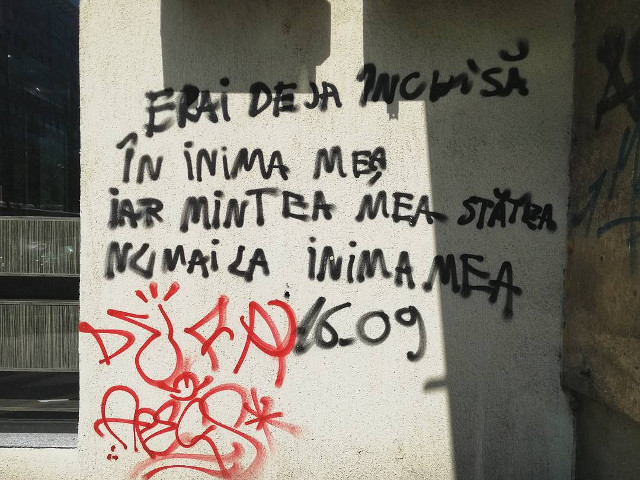 ERAI DEJA ÎNCHISĂ
ÎN INIMA MEA
IAR MINTEA MEA STĂTEA
NUMAI LA INIMA MEA
16.09